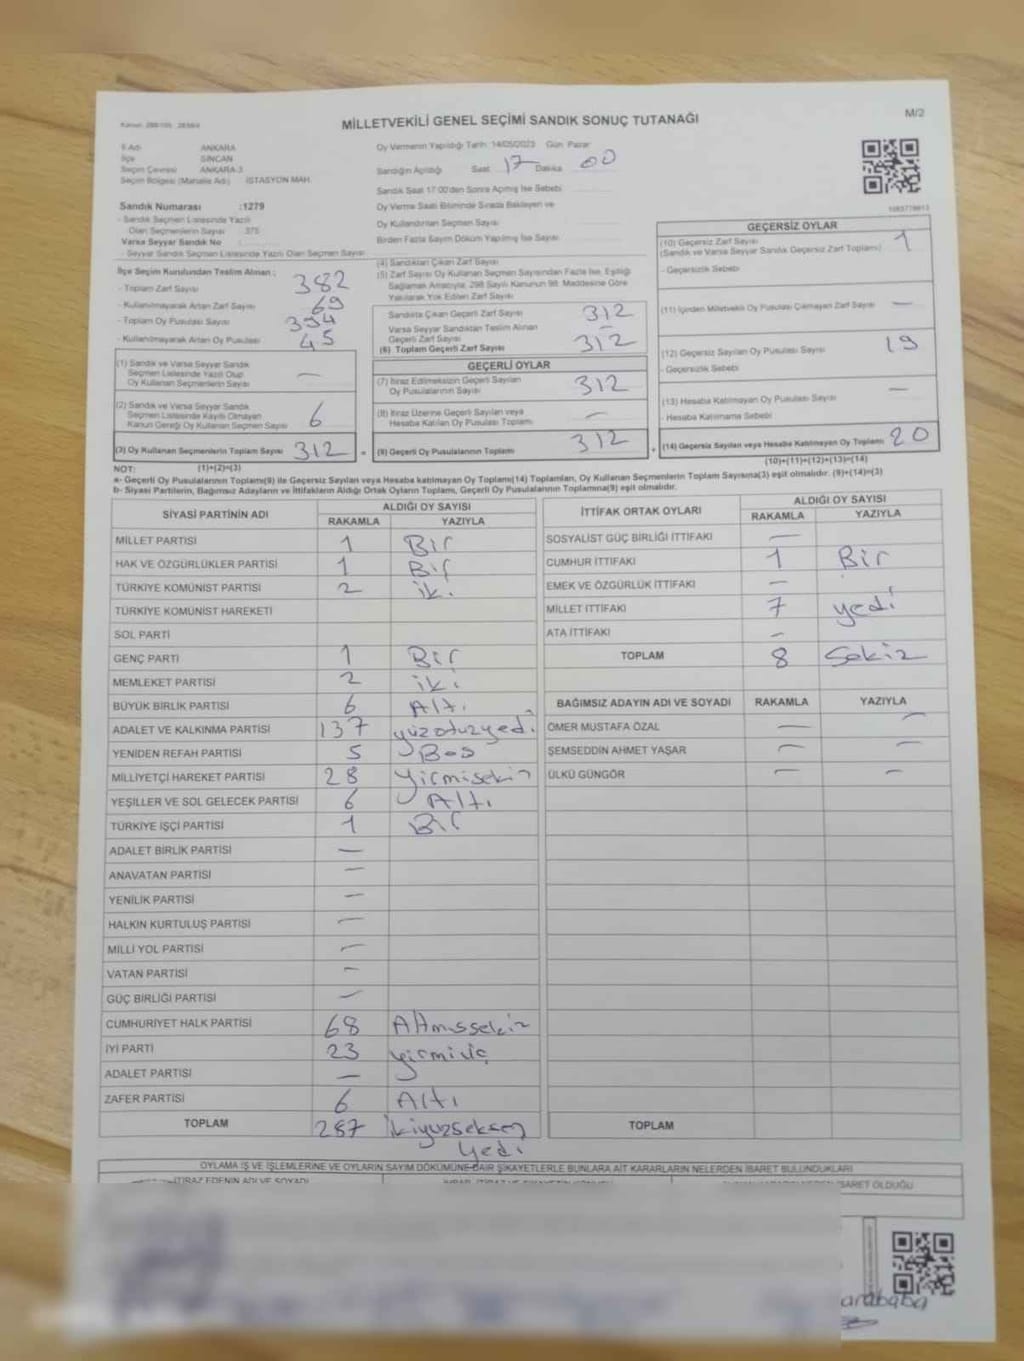 M/2
MİLLETVEKİLİ GENEL SEÇİMİ SANDIK SONUÇ TUTANAĞI
İl Adı ANKARA
İlçe SİNCAN
Seçim Çevresi ANKARA-3
Seçim Bölgesi (Mahalle Adı) İSTASYON MAH.
Oy Vermenin Yapıldığı Tarih: 14/05/2023 Gün: Pazar
Sandığın Açıldığı Saat 17 Dakika 00
Sandık Saat 17:00'den Sonra Açılmış İse Sebebi
Oy Verme Saati Bitiminde Sırada Bekleyen ve
Oy Kullandırılan Seçmen Sayısı
Birden Fazla Sayım Döküm Yapılmış İse Sayısı
Sandık Numarası :1279
- Sandık Seçmen Listesinde Yazılı
Olan Seçmenlerin Sayısı 375
Varsa Seyyar Sandık No
Seyyar Sandık Seçmen Listesinde Yazılı Olan Seçmen Sayısı
İlçe Seçim Kurulundan Teslim Alınan ;
- Toplam Zarf Sayısı 382
- Kullanılmayarak Artan Zarf Sayısı 69
- Toplam Oy Pusulası Sayısı 394
- Kullanılmayarak Artan Oy Pusulası 45
(1) Sandık ve Varsa Seyyar Sandık
Seçmen Listesinde Yazılı Olup
Oy Kullanan Seçmenlerin Sayısı —
(2) Sandık ve Varsa Seyyar Sandık
Seçmen Listesinde Kayıtlı Olmayan
Kanun Gereği Oy Kullanan Seçmen Sayısı 6
(3) Oy Kullanan Seçmenlerin Toplam Sayısı 312 =
(4) Sandıktan Çıkan Zarf Sayısı
(5) Zarf Sayısı Oy Kullanan Seçmen Sayısından Fazla İse, Eşitliği
Sağlamak Amacıyla, 298 Sayılı Kanunun 98. Maddesine Göre
Yakılarak Yok Edilen Zarf Sayısı
Sandıkta Çıkan Geçerli Zarf Sayısı 312
Varsa Seyyar Sandıktan Teslim Alınan
Geçerli Zarf Sayısı —
(6) Toplam Geçerli Zarf Sayısı 312
GEÇERLİ OYLAR
(7) İtiraz Edilmeksizin Geçerli Sayılan
Oy Pusulalarının Sayısı 312
(8) İtiraz Üzerine Geçerli Sayılan veya
Hesaba Katılan Oy Pusulası Toplamı —
(9) Geçerli Oy Pusulalarının Toplamı 312 +
GEÇERSİZ OYLAR
(10) Geçersiz Zarf Sayısı 1
(Sandık ve Varsa Seyyar Sandık Geçersiz Zarf Toplamı)
- Geçersizlik Sebebi
(11) İçinden Milletvekili Oy Pusulası Çıkmayan Zarf Sayısı —
(12) Geçersiz Sayılan Oy Pusulası Sayısı 19
- Geçersizlik Sebebi
(13) Hesaba Katılmayan Oy Pusulası Sayısı —
- Hesaba Katılmama Sebebi
(14) Geçersiz Sayılan veya Hesaba Katılmayan Oy Toplamı 20
NOT: (1)+(2)=(3) (10)+(11)+(12)+(13)=(14)
a- Geçerli Oy Pusulalarının Toplamı(9) ile Geçersiz Sayılan veya Hesaba katılmayan Oy Toplamı(14) Toplamları, Oy Kullanan Seçmenlerin Toplam Sayısına(3) eşit olmalıdır. (9)+(14)=(3)
b- Siyasi Partilerin, Bağımsız Adayların ve İttifakların Aldığı Ortak Oyların Toplamı, Geçerli Oy Pusulalarının Toplamına(9) eşit olmalıdır.
SİYASİ PARTİNİN ADI ALDIĞI OY SAYISI
RAKAMLA YAZIYLA
MİLLET PARTİSİ 1 Bir
HAK VE ÖZGÜRLÜKLER PARTİSİ 1 Bir
TÜRKİYE KOMÜNİST PARTİSİ 2 iki
TÜRKİYE KOMÜNİST HAREKETİ
SOL PARTİ
GENÇ PARTİ 1 Bir
MEMLEKET PARTİSİ 2 iki
BÜYÜK BİRLİK PARTİSİ 6 Altı
ADALET VE KALKINMA PARTİSİ 137 yüzotuzyedi
YENİDEN REFAH PARTİSİ 5 Beş
MİLLİYETÇİ HAREKET PARTİSİ 28 Yirmisekiz
YEŞİLLER VE SOL GELECEK PARTİSİ 6 Altı
TÜRKİYE İŞÇİ PARTİSİ 1 Bir
ADALET BİRLİK PARTİSİ —
ANAVATAN PARTİSİ —
YENİLİK PARTİSİ —
HALKIN KURTULUŞ PARTİSİ —
MİLLİ YOL PARTİSİ —
VATAN PARTİSİ —
GÜÇ BİRLİĞİ PARTİSİ —
CUMHURİYET HALK PARTİSİ 68 Altmışsekiz
İYİ PARTİ 23 yirmiüç
ADALET PARTİSİ —
ZAFER PARTİSİ 6 Altı
TOPLAM 287 İkiyüzseksen
yedi
İTTİFAK ORTAK OYLARI ALDIĞI OY SAYISI
RAKAMLA YAZIYLA
SOSYALİST GÜÇ BİRLİĞİ İTTİFAKI —
CUMHUR İTTİFAKI 1 Bir
EMEK VE ÖZGÜRLÜK İTTİFAKI —
MİLLET İTTİFAKI 7 yedi
ATA İTTİFAKI —
TOPLAM 8 Sekiz
BAĞIMSIZ ADAYIN ADI VE SOYADI RAKAMLA YAZIYLA
ÖMER MUSTAFA ÖZAL — —
ŞEMSEDDİN AHMET YAŞAR — —
ÜLKÜ GÜNGÖR — —
TOPLAM
OYLAMA İŞ VE İŞLEMLERİNE VE OYLARIN SAYIM DÖKÜMÜNE DAİR ŞİKAYETLERLE BUNLARA AİT KARARLARIN NELERDEN İBARET BULUNDUKLARI
İTİRAZ EDENİN ADI VE SOYADI
İBARET OLDUĞU